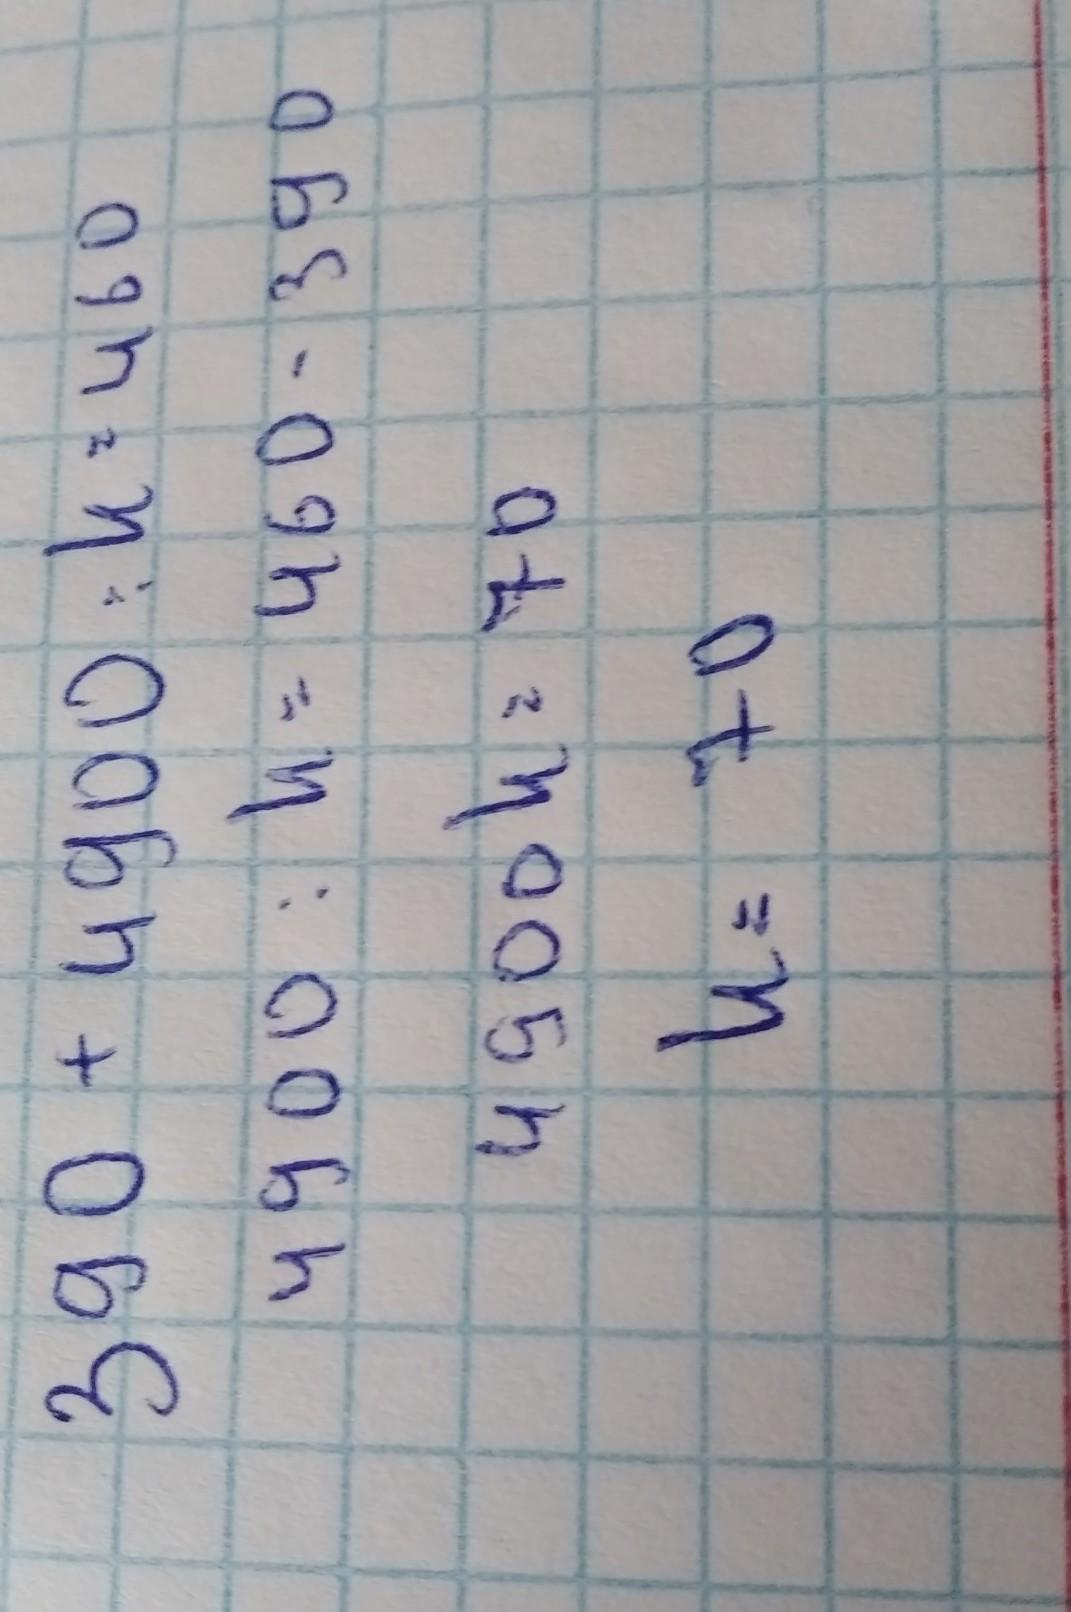 390 + 4900 : k = 460
4900 : k = 460 - 390
4900 k = 70
k = 70